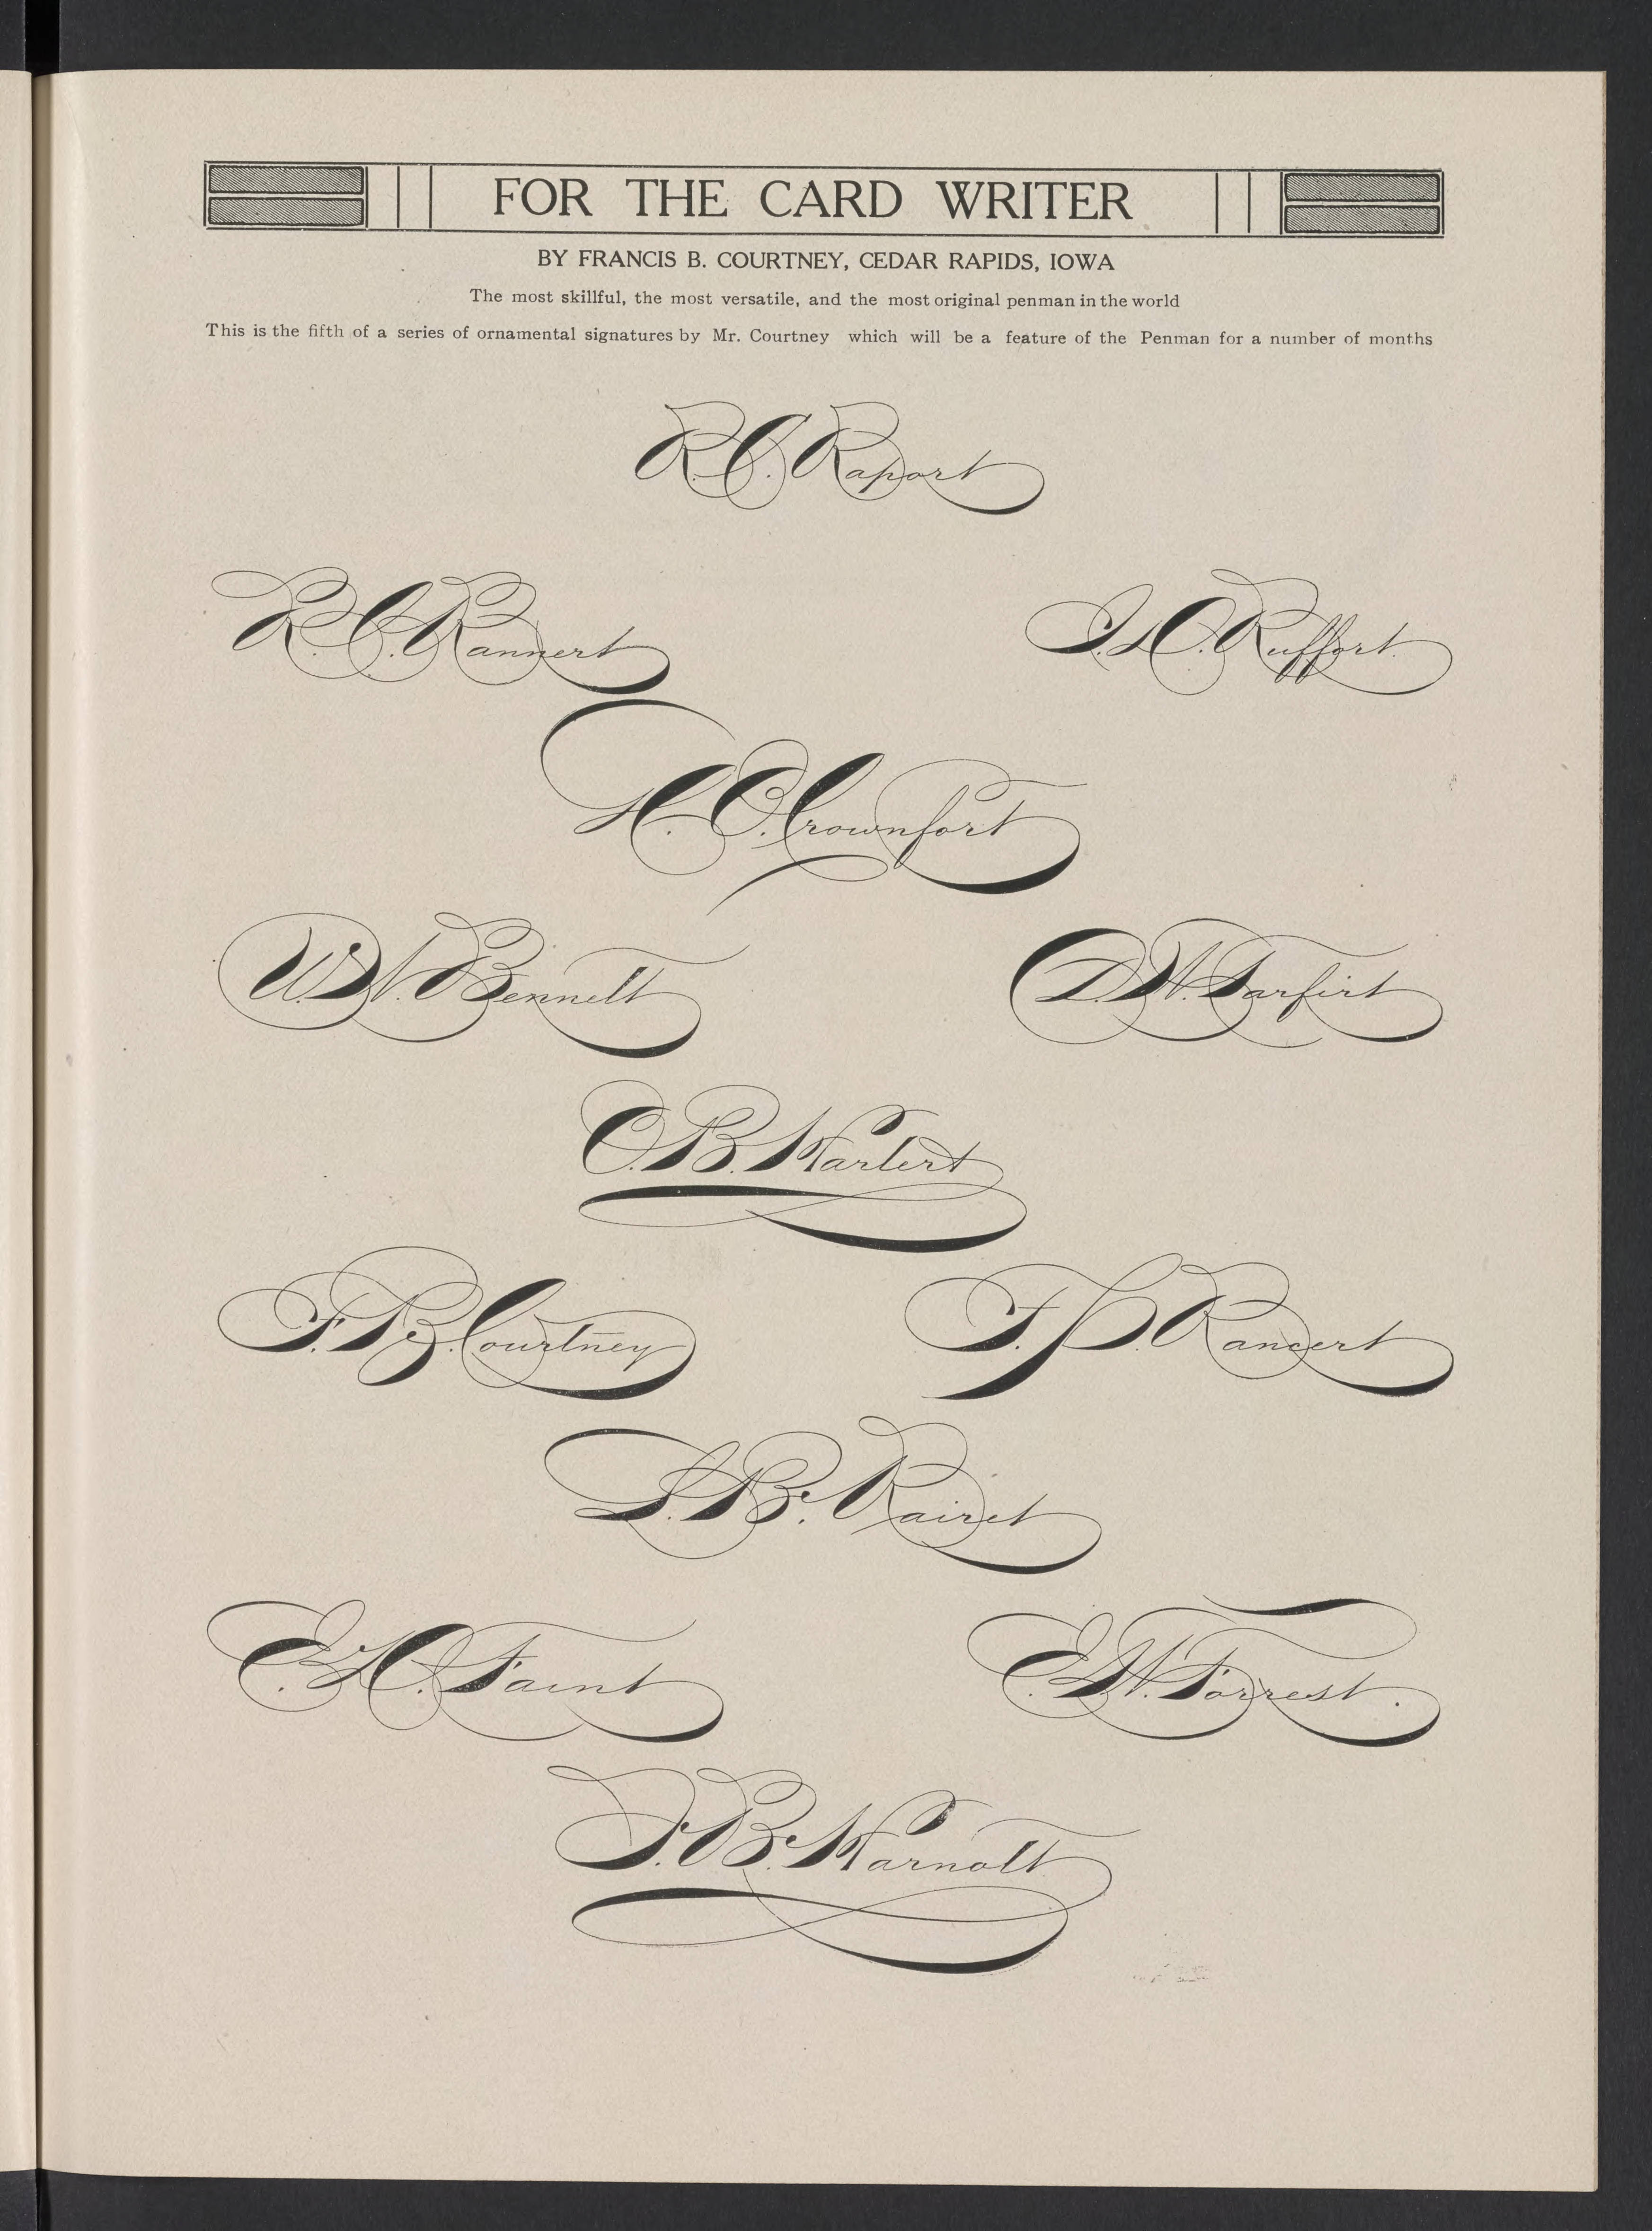 FOR THE CARD WRITER
BY FRANCIS B. COURTNEY, CEDAR RAPIDS, IOWA
The most skillful, the most versatile, and the most original penman in the world
This is the fifth of a series of ornamental signatures by Mr. Courtney which will be a feature of the Penman for a number of months
R. C. Raport
R. C. Rannert
H. C. Ruffort.
H. C. Crownfort
W. N. Bennett
D. W. Farfirt
O. B. Karlert
F. B. Courtney
F. S. Rancert
S. B. Rairet
E. H. Faint
E. W. Forrest.
F. B. Karnott